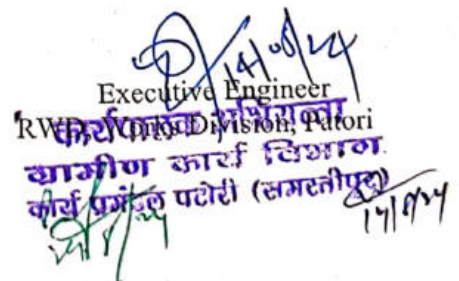 14/08/24
Executive Engineer
RWD, Works Division, Patori
कार्यपालक अभियन्ता
ग्रामीण कार्य विभाग
कार्य प्रमंडल पटोरी (समस्तीपुर)